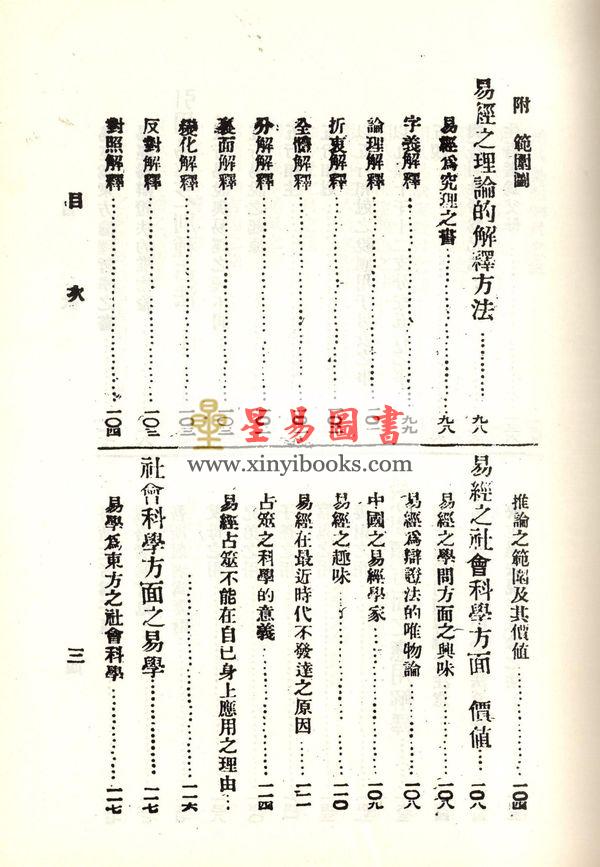 附 範圍圖
易經之理論的解釋方法………九八
易經爲究理之書………九八
字義解釋………九九
論理解釋………
折衷解釋………
全體解釋………
分解解釋………
裏面解釋………
變化解釋………
反對解釋………一〇三
對照解釋………一〇四
推論之範圍及其價值………一〇四
易經之社會科學方面 價值……一〇八
易經之學問方面之興味………一〇八
易經爲辯證法的唯物論………一〇八
中國之易經學家………一〇九
易經之趣味………一一〇
易經在最近時代不發達之原因………一一一
占筮之科學的意義………一一四
易經占筮不能在自己身上應用之理由…
………一一六
社會科學方面之易學………一一七
易學爲東方之社會科學………一一七
目 次
三
星易圖書
www.xinyibooks.com